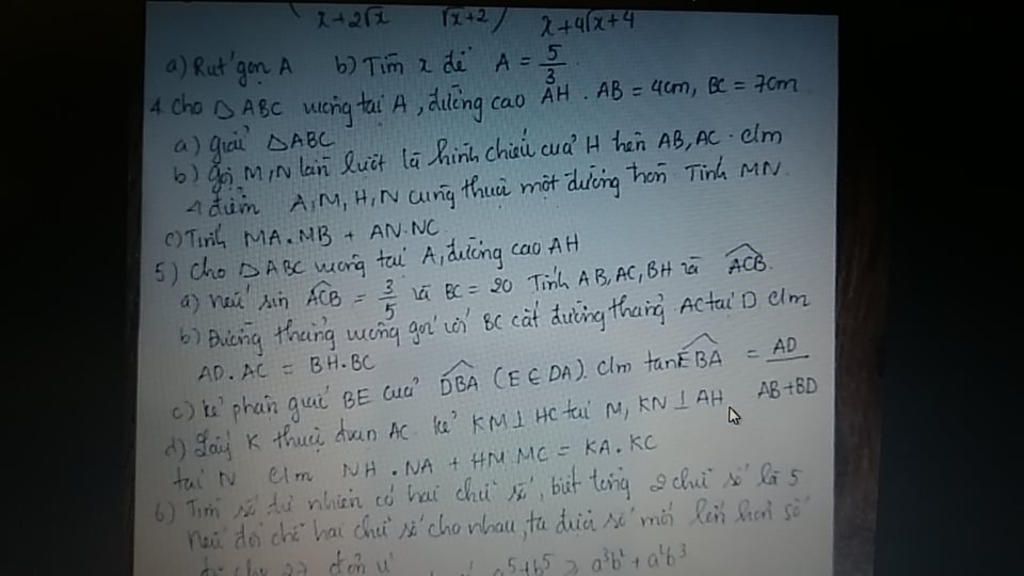 x+2√x √x+2) x+4√x+4
a) Rut' gọn A b) Tìm x để A = 5/3.
4 cho △ABC vuông tại A, đường cao AH. AB = 4cm, BC = 7cm
a) giải △ABC
b) gọi M,N lần lượt là hình chiếu của H trên AB, AC. C/m
4 điểm A,M,H,N cùng thuộc một đường tròn Tính MN.
c) Tính MA.MB + AN.NC
5) Cho △ABC vuông tại A, đường cao AH
a) nếu sin ACB = 3/5 và BC = 20 Tính AB, AC, BH và ACB.
b) Đường thẳng vuông góc với BC cắt đường thẳng AC tại D C/m
AD.AC = BH.BC
c) kẻ phân giác BE của DBA (E ∈ DA). C/m tan EBA = AD/AB+BD
d) Lấy K thuộc đoạn AC kẻ KM⊥HC tại M, KN⊥AH
tại N C/m NH.NA + HM.MC = KA.KC
6) Tìm số tự nhiên có hai chữ số, biết tổng 2 chữ số là 5
Nếu đổi chỗ hai chữ số cho nhau, ta được số mới lớn hơn số
27 đơn vị a⁵+b⁵ ≥ a³b² + a²b³